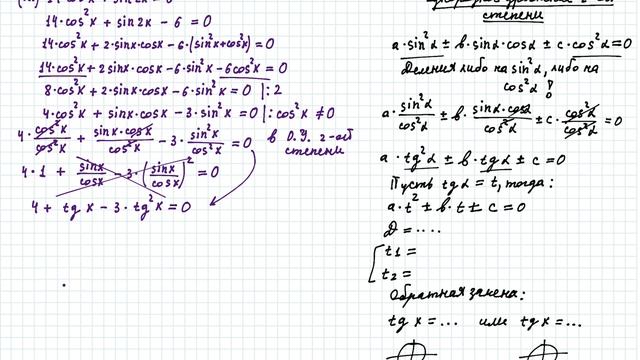 14·cos²x + sin2x - 6 = 0
14·cos²x + 2·sinx·cosx - 6·(sin²x+cos²x) = 0
14·cos²x + 2sinx·cosx - 6·sin²x - 6cos²x = 0
8·cos²x + 2·sinx·cosx - 6·sin²x = 0 |:2
4·cos²x + sinx·cosx - 3·sin²x = 0 |:cos²x ≠ 0
4·cos²x/cos²x + sinx·cosx/cos²x - 3·sin²x/cos²x = 0 в О.У. 2-ой степени
4·1 + sinx/cosx - 3·(sinx/cosx)² = 0
4 + tgx - 3·tg²x = 0
степени
a·sin²α ± b·sinα·cosα ± c·cos²α = 0
Деления либо на sin²α, либо на
cos²α!
a·sin²α/cos²α ± b·sinα·cosα/cos²α ± c·cos²α/cos²α = 0
a·tg²α ± b·tgα ± c = 0
Пусть tgα = t, тогда:
a·t² ± b·t ± c = 0
D = ....
t1 =
t2 =
Обратная замена:
tgx = ... или tgx = ...